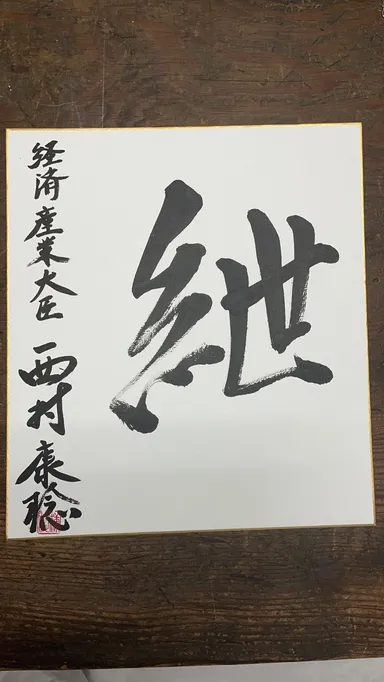 紲
経済産業大臣 西村康稔